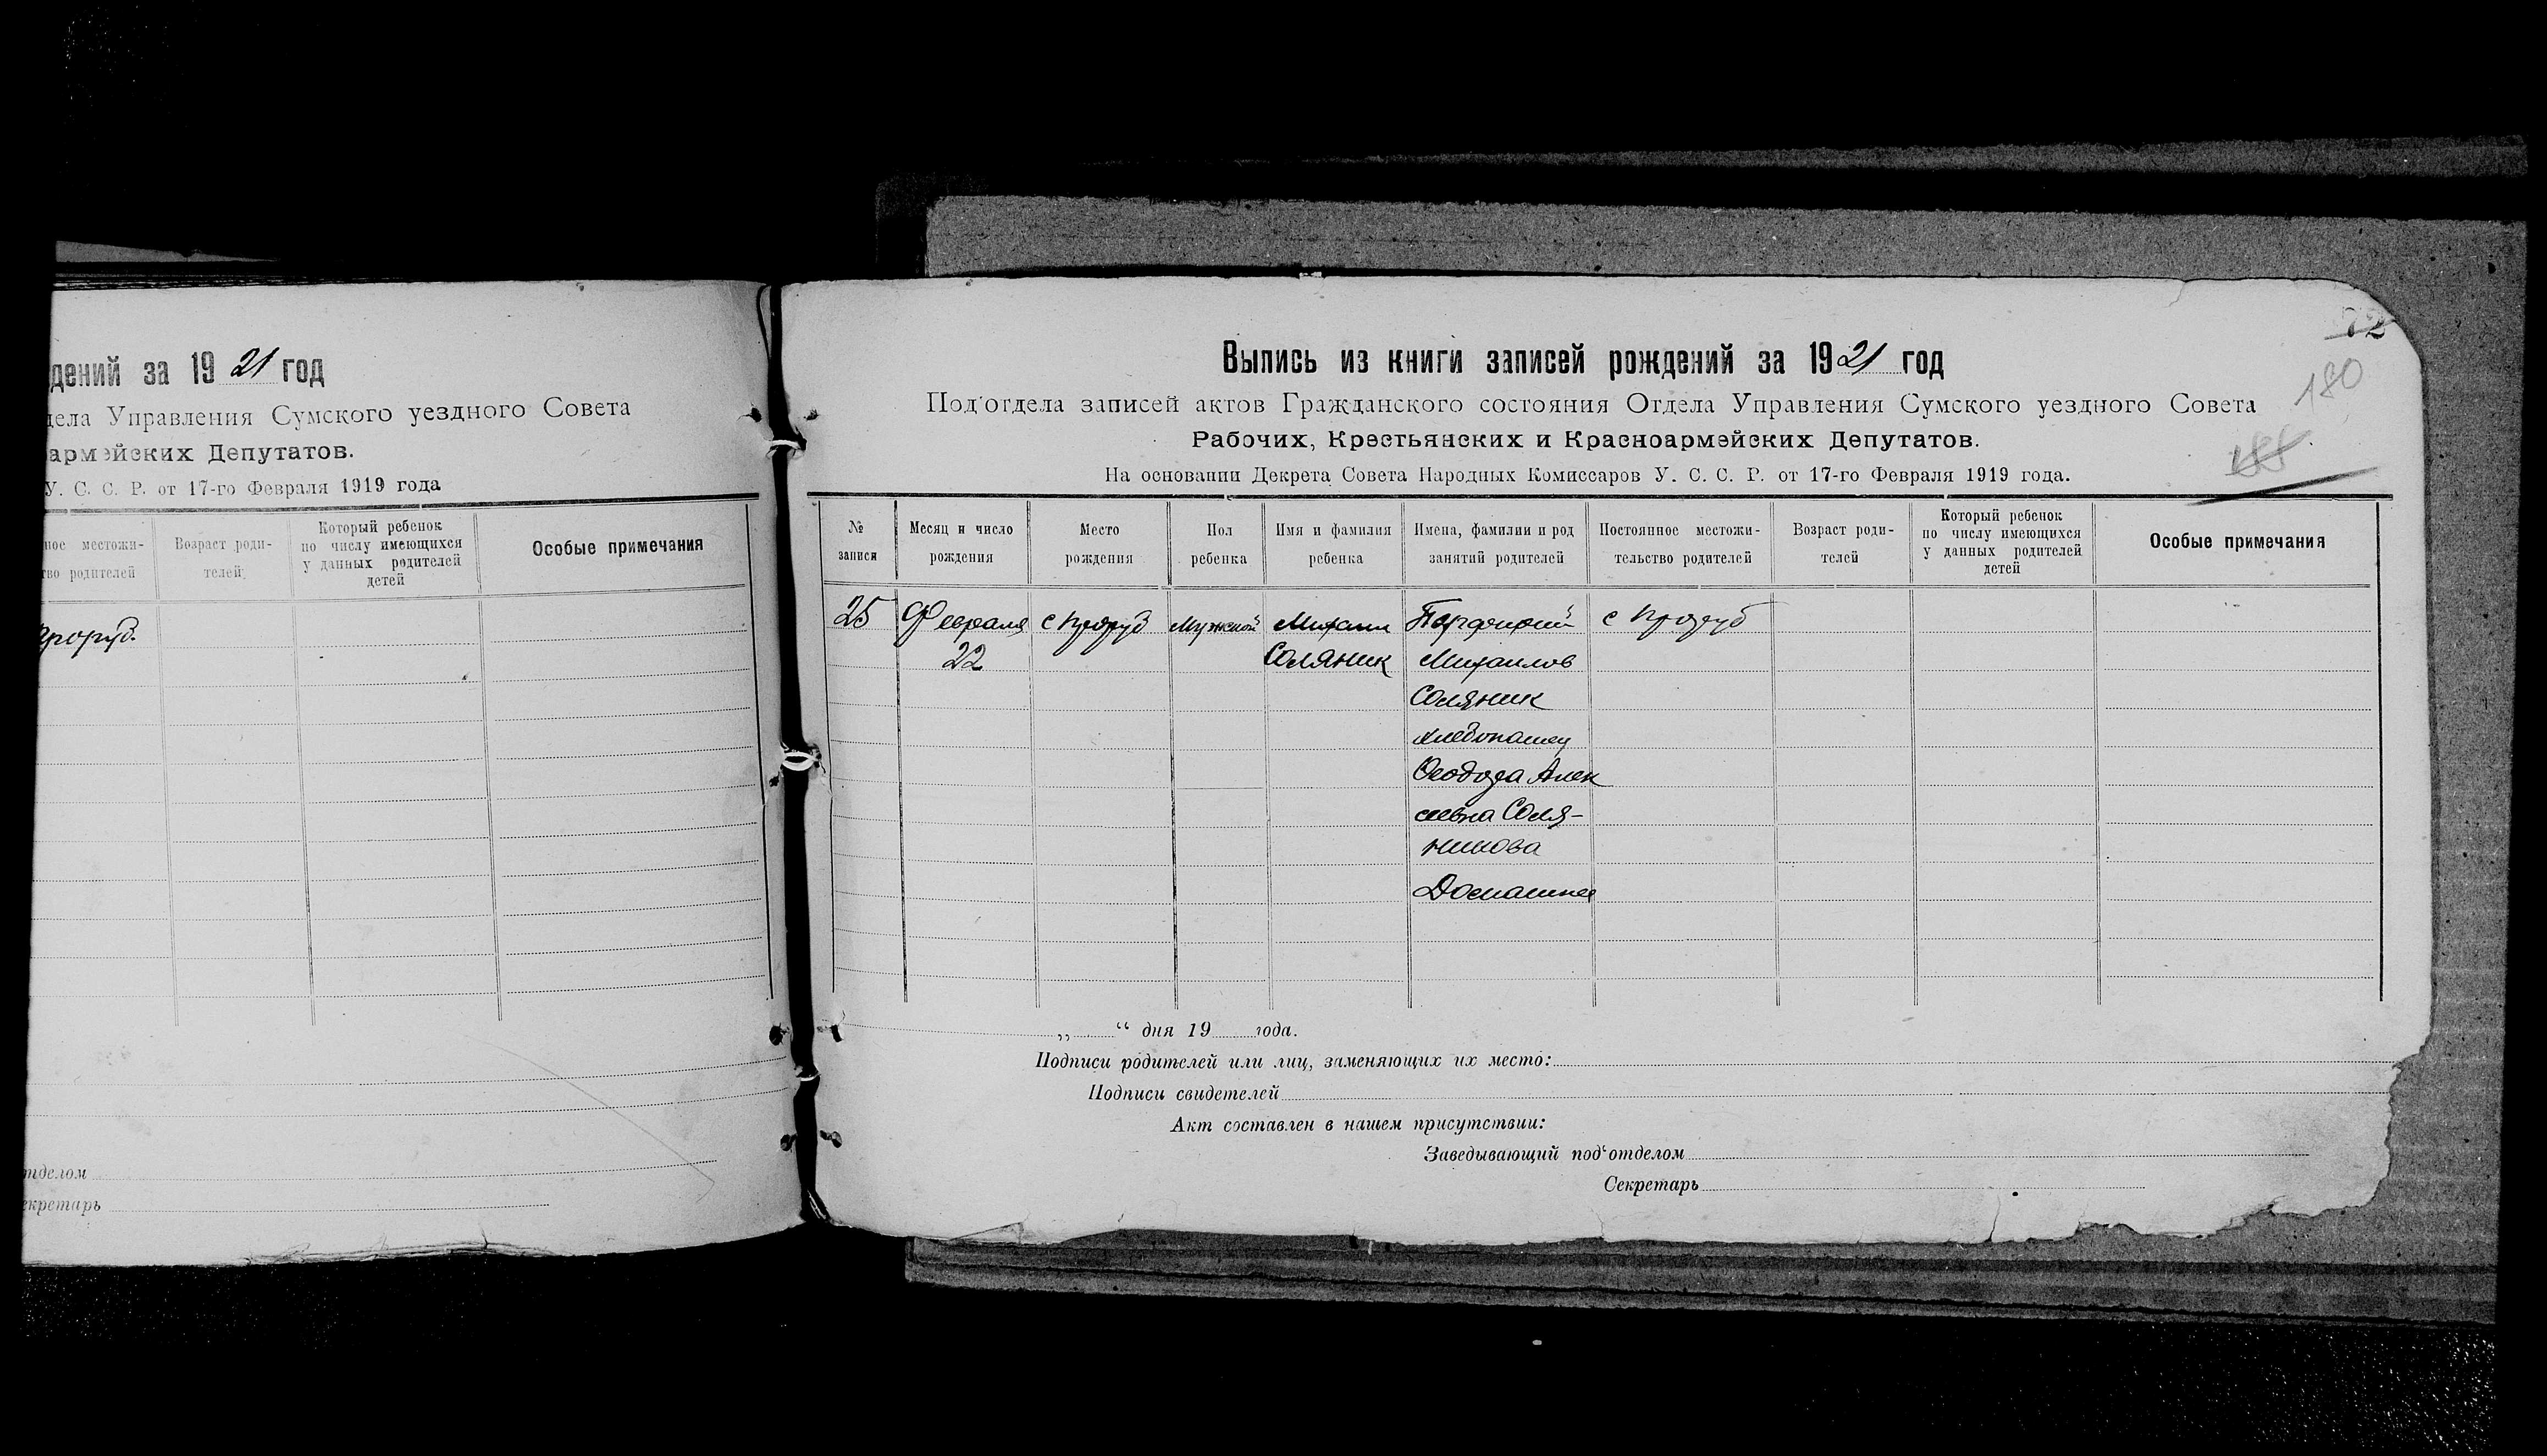 дений за 1921 год
дела Управления Сумского уездного Совета
армейских Депутатов.
У. С. С. Р. от 17-го Февраля 1919 года
ное местожи-
тво родителей
Возраст роди-
телей
Который ребенок
по числу имеющихся
у данных родителей
детей
Особые примечания
Проруб.
отделом
екретарь
72
180
Выпись из книги записей рождений за 1921 год
Под'отдела записей актов Гражданского состояния Отдела Управления Сумского уездного Совета
Рабочих, Крестьянских и Красноармейских Депутатов.
На основании Декрета Совета Народных Комиссаров У. С. С. Р. от 17-го Февраля 1919 года.
№
записи
Месяц и число
рождения
Место
рождения
Пол
ребенка
Имя и фамилия
ребенка
Имена, фамилии и род
занятий родителей
Постоянное местожи-
тельство родителей
Возраст роди-
телей
Который ребенок
по числу имеющихся
у данных родителей
детей
Особые примечания
25
Февраля
22
с Проруб
Мужской
Михаил
Соляник
Михаилов
Соляник
хлебопашец
Феодора Алек
сеевна Соля-
никова
Домашнее
с Проруб
„ “ дня 19 года.
Подписи родителей или лиц, заменяющих их место:
Подписи свидетелей
Акт составлен в нашем присутствии:
Заведывающий под'отделом
Секретарь